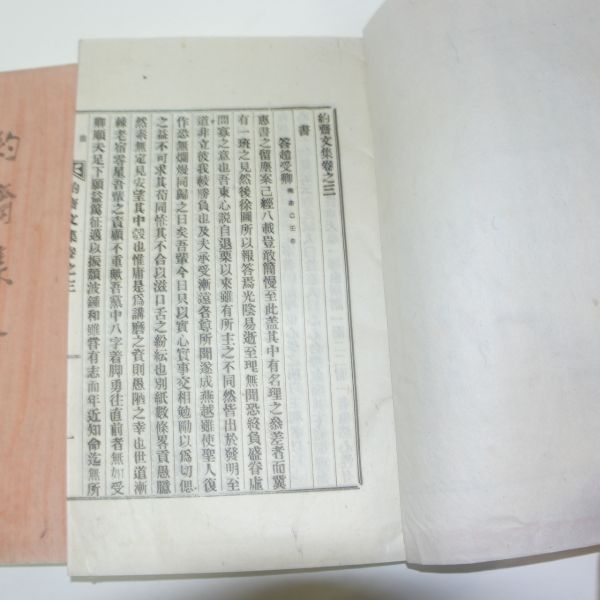 約齋文集卷之三
書
答趙受卿
惠書之留塵案已經八載豈敢簡慢至此盖其中有名理之參差者而冀
有一班之見然後徐圖所以報答焉光陰易逝至理無聞恐終負盛眷虛
問寡之意也吾東心說自退栗以來雖有所主之不同然皆出於發明至
道非立彼我較勝負也及夫承受漸遠各尊所聞遂成燕越雖使聖人復
作恐無爛熳同歸之日矣吾輩今日只以實心實事交相勉勵以爲切偲
之益不可求其苟同恃其不合以滋口舌之紛紜也別紙數條畧貢愚臆
然素無定見安望其中彀也惟庸是爲講磨之資則愚陋之幸也世道漸
棘老宿零星吾輩之責顧不重歟吾黨中八字着脚勇往直前者無如受
卿願天足下願益篤征邁以振頹波鍾和雖嘗有志而年近知命迄無所
約齋文集卷之三
一
約齋集